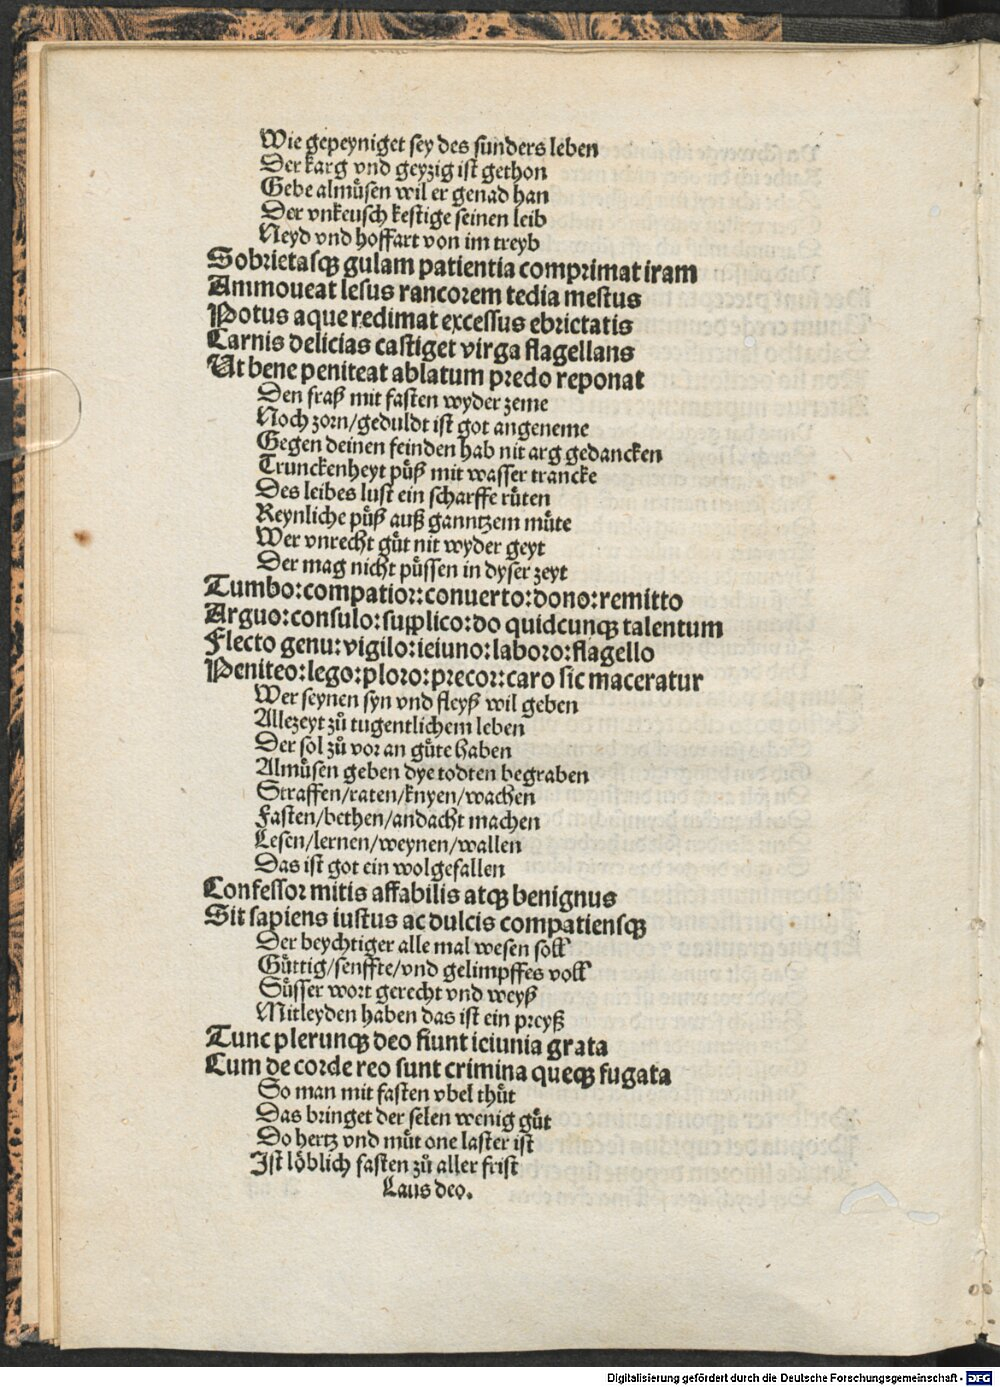 Wie gepeyniget sey des sunders leben
Der karg vnd geyzig ist gethon
Gebe almuͤsen wil er genad han
Der vnkeusch kestige seinen leib
Neyd vnd hoffart von im treyb
Sobrietasqꝫ gulam patientia comprimat iram
Ammoueat lesus rancorem tedia mestus
Potus aque redimat excessus ebrietatis
Carnis delicias castiget virga flagellans
Ut bene peniteat ablatum predo reponat
Den fraß mit fasten wyder zeme
Noch zorn/geduldt ist got angeneme
Gegen deinen feinden hab nit arg gedancken
Trunckenheyt puͤß mit wasser trancke
Des leibes lust ein scharffe ruͤten
Reynliche puͤß auß ganntzem muͤte
Wer vnrecht guͤt nit wyder geyt
Der mag nicht puͤssen in dyser zeyt
Tumbo:compatior:conuerto:dono:remitto
Arguo:consulo:supplico:do quidcunqꝫ talentum
Flecto genu:vigilo:ieiuno:laboro:flagello
Peniteo:lego:ploro:precor:caro sic maceratur
Wer seynen syn vnd fleyß wil geben
Allezeyt zuͤ tugentlichem leben
Der sol zuͤ vor an guͤte haben
Almuͤsen geben dye todten begraben
Straffen/raten/knyen/wachen
Fasten/bethen/andacht machen
Lesen/lernen/weynen/wallen
Das ist got ein wolgefallen
Confessor mitis affabilis atqꝫ benignus
Sit sapiens iustus ac dulcis compatiensqꝫ
Der beychtiger alle mal wesen soll
Guͤttig/senffte/vnd gelimpffes voll
Suͤsser wort gerecht vnd weyß
Mitleyden haben das ist ein preyß
Tunc plerunqꝫ deo fiunt ieiunia grata
Cum de corde reo sunt crimina queqꝫ fugata
So man mit fasten vbel thuͤt
Das bringet der selen wenig guͤt
Do hertz vnd muͤt one laster ist
Ist loͤblich fasten zuͤ aller frist
Laus deo.
Digitalisierung gefördert durch die Deutsche Forschungsgemeinschaft - DFG